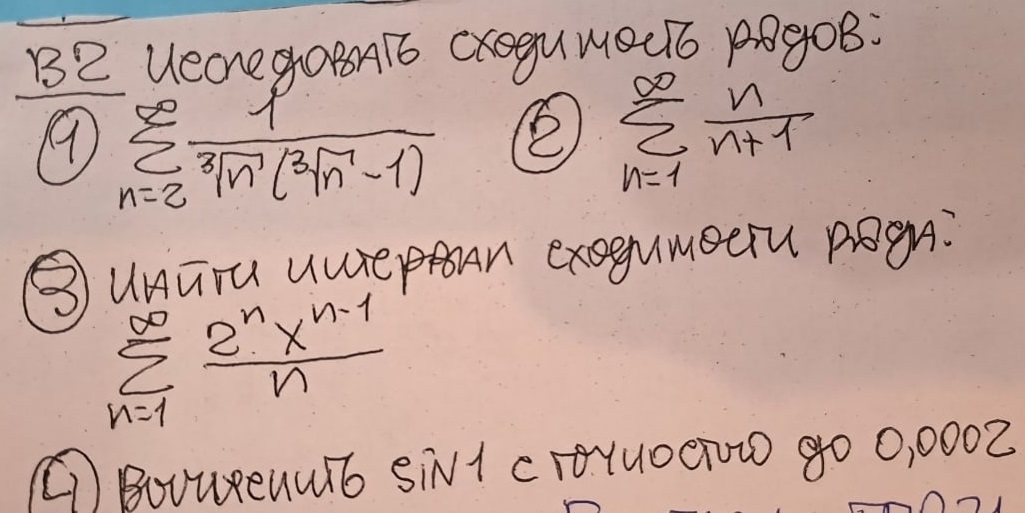 В2 Исследовать сходимость рядов:
① \sum_{n=2}^{\infty} \frac{1}{\sqrt[3]{n}(\sqrt[3]{n}-1)} ② \sum_{n=1}^{\infty} \frac{n}{n+1}
③ Найти интервал сходимости ряда:
\sum_{n=1}^{\infty} \frac{2^n x^{n-1}}{n}
④ Вычислить sin1 с точностью до 0,0002